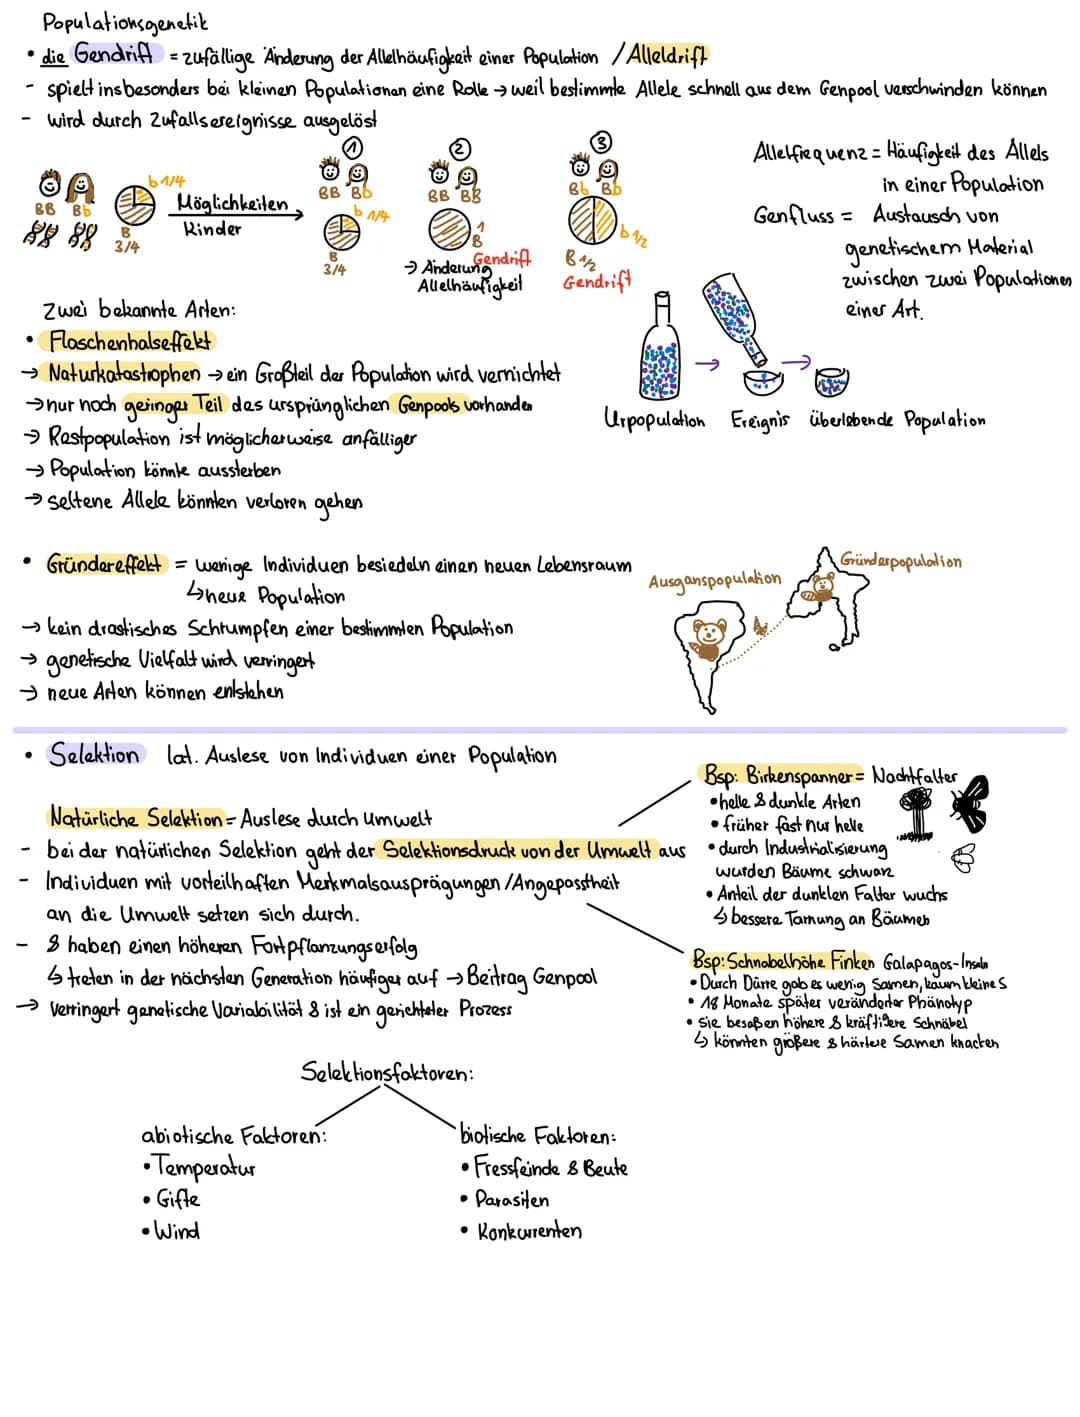 Populationsgenetik
• die Gendrift = zufällige Änderung der Allelhäufigkeit einer Population / Alleldrift
- spielt insbesonders bei kleinen Populationen eine Rolle → weil bestimmte Allele schnell aus dem Genpool verschwinden können
- wird durch Zufallsereignisse ausgelöst
BB Bb
b 1/4
B 3/4
Möglichkeiten
Kinder
①
BB Bb
b 1/4
B
3/4
②
BB BB
1
B
Gendrift
→ Änderung
Allelhäufigkeit
③
Bb Bb
b 1/2
B 1/2
Gendrift
Allelfrequenz = Häufigkeit des Allels
in einer Population
Genfluss = Austausch von
genetischem Material
zwischen zwei Populationen
einer Art.
Zwei bekannte Arten:
• Flaschenhalseffekt
→ Naturkatastrophen → ein Großteil der Population wird vernichtet
→ nur noch geringer Teil des ursprünglichen Genpools vorhanden
→ Restpopulation ist möglicherweise anfälliger
→ Population könnte aussterben
→ seltene Allele könnten verloren gehen
Urpopulation Ereignis überlebende Population
• Gründereffekt = wenige Individuen besiedeln einen neuen Lebensraum
↳ neue Population
→ kein drastisches Schrumpfen einer bestimmten Population
→ genetische Vielfalt wird verringert
→ neue Arten können entstehen
Ausganspopulation
Gründerpopulation
• Selektion lat. Auslese von Individuen einer Population
Natürliche Selektion = Auslese durch Umwelt
- bei der natürlichen Selektion geht der Selektionsdruck von der Umwelt aus
- Individuen mit vorteilhaften Merkmalsausprägungen / Angepasstheit
an die Umwelt setzen sich durch.
- & haben einen höheren Fortpflanzungserfolg
↳ treten in der nächsten Generation häufiger auf → Beitrag Genpool
→ verringert genetische Variabilität & ist ein gerichteter Prozess
Bsp: Birkenspanner = Nachtfalter
• helle & dunkle Arten
• früher fast nur helle
• durch Industrialisierung
wurden Bäume schwarz
• Anteil der dunklen Falter wuchs
↳ bessere Tarnung an Bäumen
Bsp: Schnabelhöhe Finken Galapagos-Inseln
• Durch Dürre gab es wenig Samen, kaum kleine S
• 18 Monate später veränderter Phänotyp
• sie besaßen höhere & kräftigere Schnäbel
↳ könnten größere & härtere Samen knacken
Selektionsfaktoren:
abiotische Faktoren:
• Temperatur
• Gifte
• Wind
biotische Faktoren:
• Fressfeinde & Beute
• Parasiten
• Konkurrenten